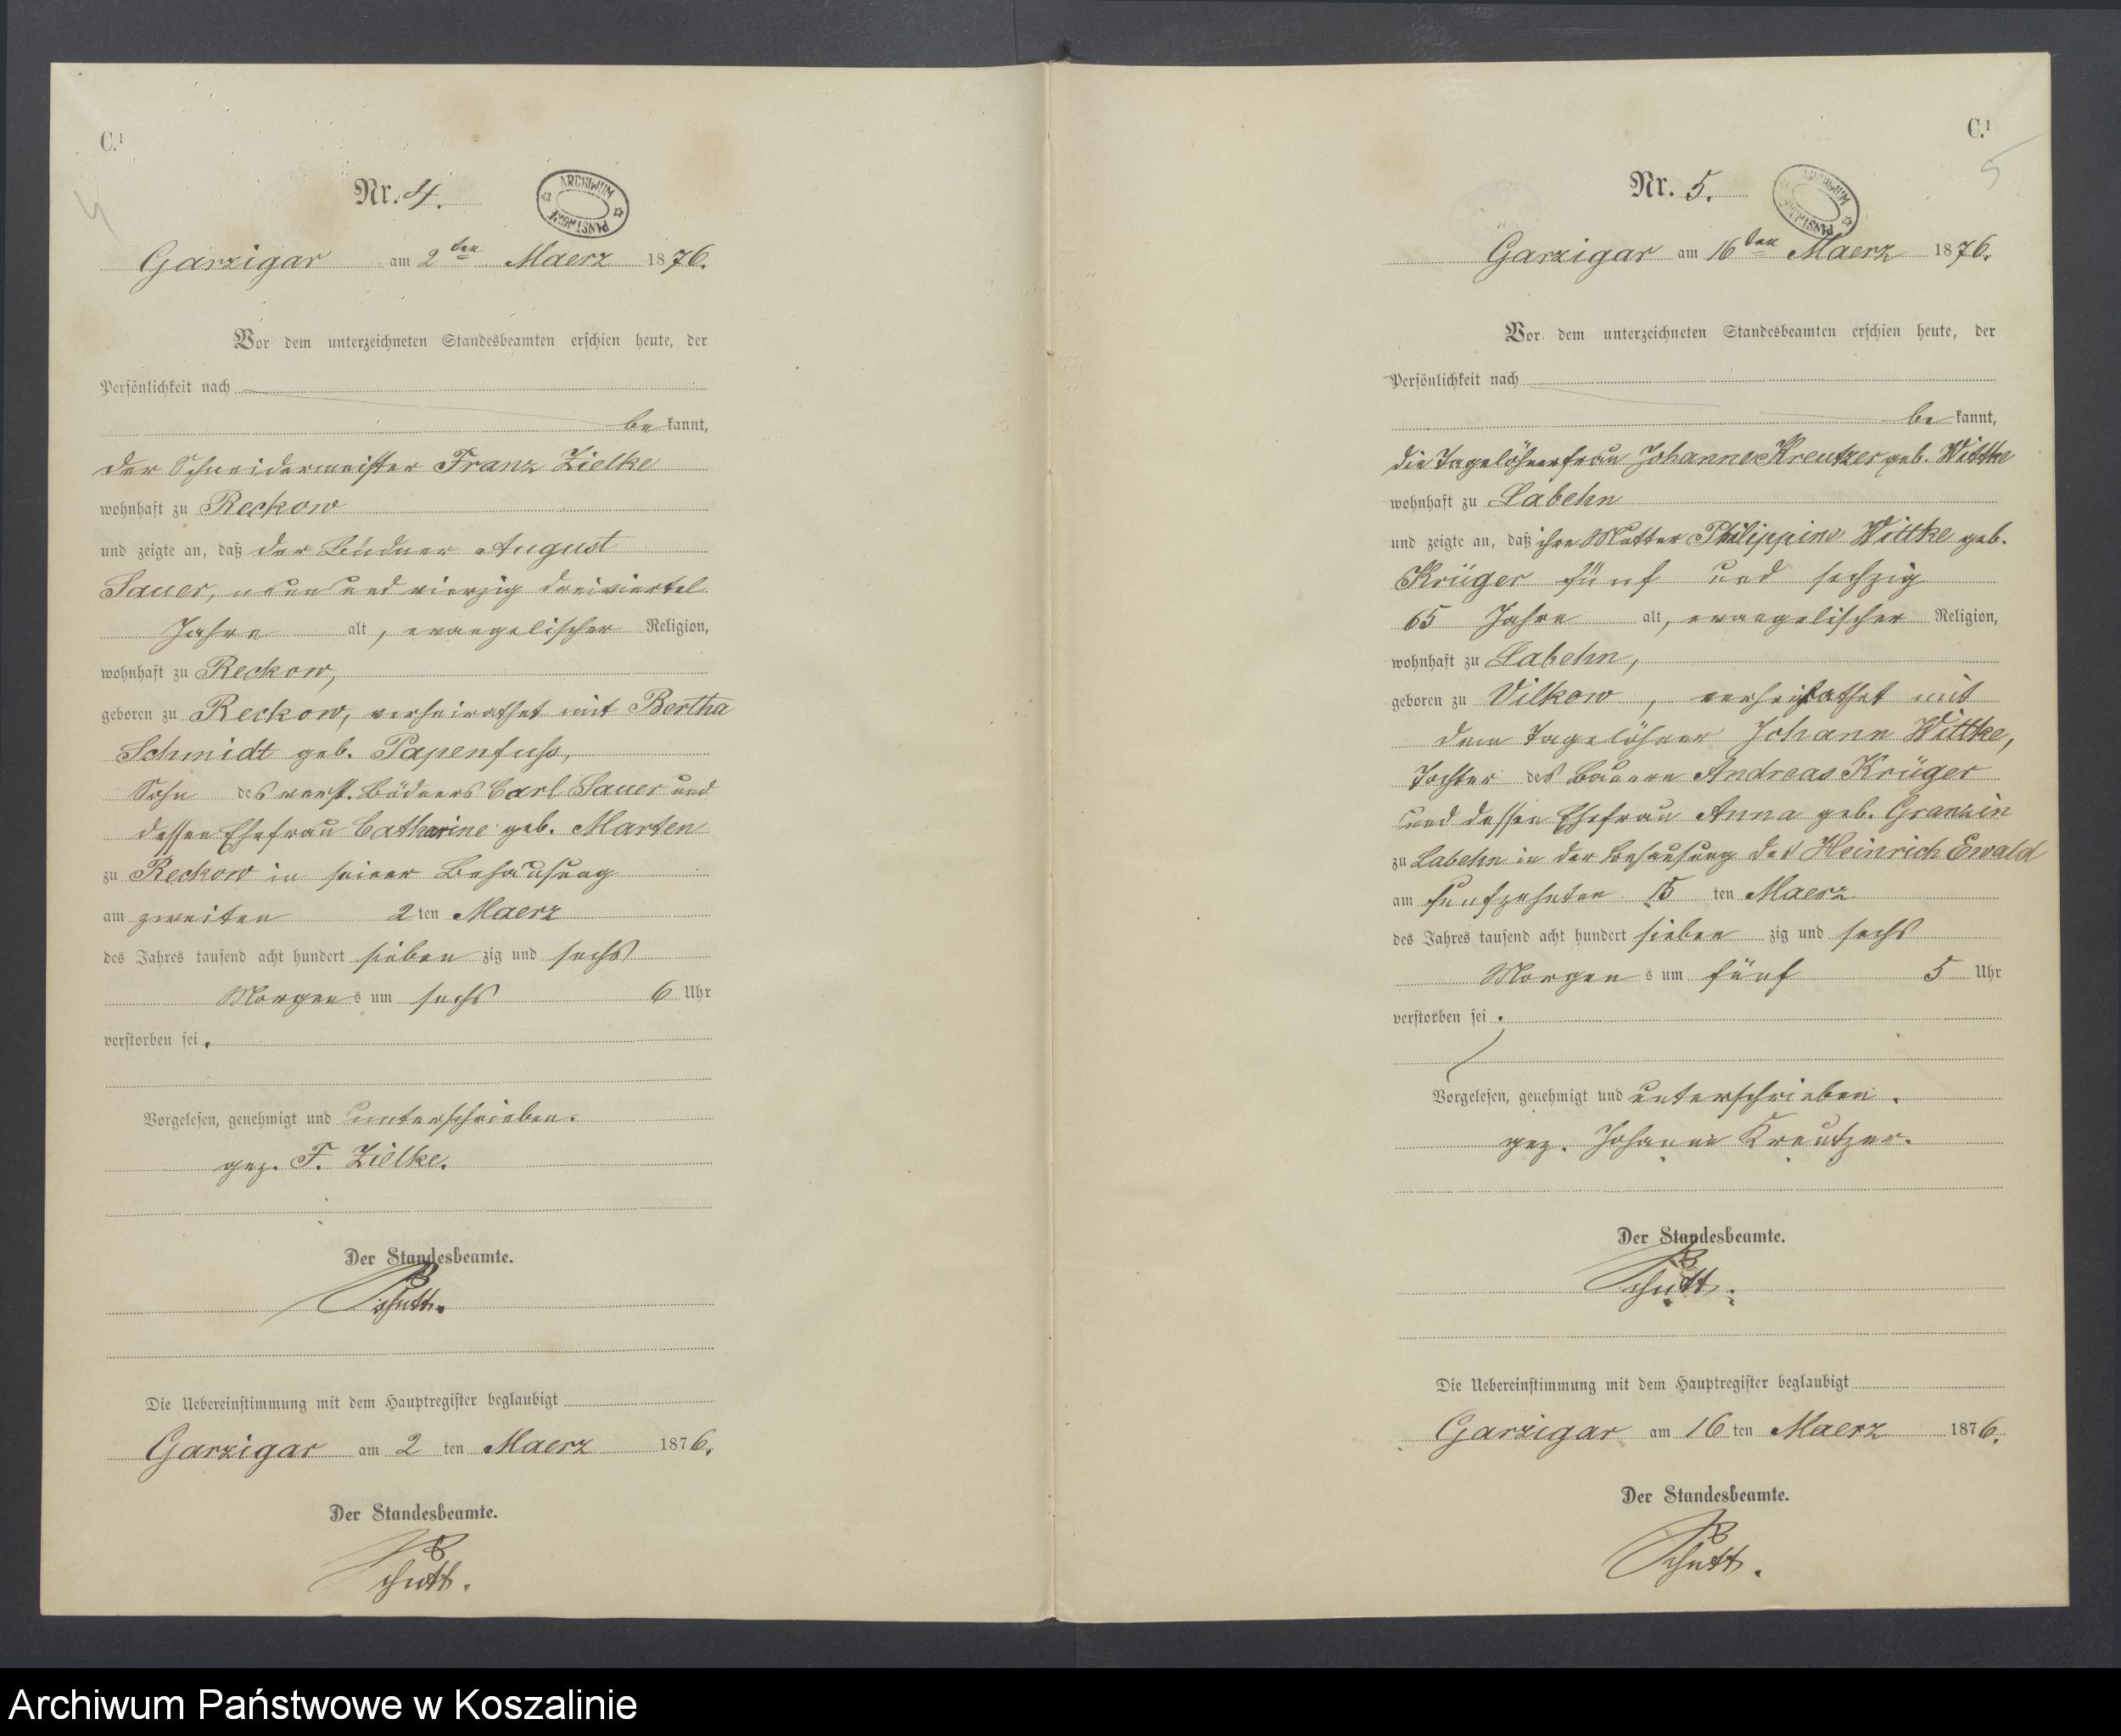 C.¹
4
Nr. 4.
ARCHIWUM PAŃSTWOWE
Garzigar am 2ten Maerz 1876.
Vor dem unterzeichneten Standesbeamten erschien heute, der
Persönlichkeit nach
be kannt,
der Schneidermeister Franz Zielke
wohnhaft zu Reckow
und zeigte an, daß der Büdner August
Sauer, neun und vierzig dreiviertel
Jahre alt, evangelischer Religion,
wohnhaft zu Reckow,
geboren zu Reckow, verheirathet mit Bertha
Schmidt geb. Papenfuss,
Sohn des verst. Büdners Carl Sauer und
dessen Ehefrau Catharine geb. Marten
zu Reckow in seiner Behausung
am zweiten 2 ten Maerz
des Jahres tausend acht hundert sieben zig und sechs
Morgen s um sechs 6 Uhr
verstorben sei.
Vorgelesen, genehmigt und unterschrieben.
gez. F. Zielke.
Der Standesbeamte.
Schütt.
Die Uebereinstimmung mit dem Hauptregister beglaubigt
Garzigar am 2 ten Maerz 1876.
Der Standesbeamte.
Schütt.
C.¹
5
Nr. 5.
ARCHIWUM PAŃSTWOWE
Garzigar am 16ten Maerz 1876.
Vor dem unterzeichneten Standesbeamten erschien heute, der
Persönlichkeit nach
be kannt,
die Tagelöhnerfrau Johanne Kreutzer geb. Wittke
wohnhaft zu Labehn
und zeigte an, daß ihre Mutter Philippine Wittke geb.
Krüger fünf und sechzig
65 Jahre alt, evangelischer Religion,
wohnhaft zu Labehn,
geboren zu Vilkow, verheirathet mit
dem Tagelöhner Johann Wittke,
Tochter des Bauern Andreas Krüger
und dessen Ehefrau Anna geb. Granzin
zu Labehn in der Behausung des Heinrich Ewald
am funfzehnten 15 ten Maerz
des Jahres tausend acht hundert sieben zig und sechs
Morgen s um fünf 5 Uhr
verstorben sei.
Vorgelesen, genehmigt und unterschrieben.
gez. Johanne Kreutzer.
Der Standesbeamte.
Schütt.
Die Uebereinstimmung mit dem Hauptregister beglaubigt
Garzigar am 16 ten Maerz 1876.
Der Standesbeamte.
Schütt.
Archiwum Państwowe w Koszalinie